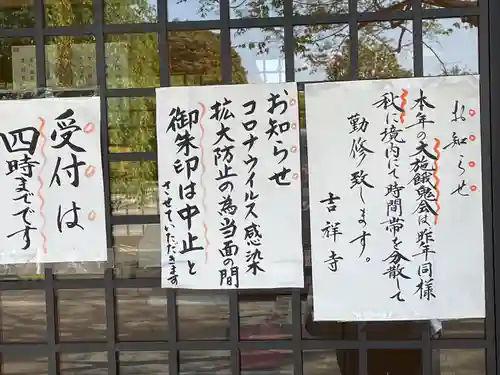 お知らせ
本年の大施餓鬼会は昨年同様
秋に境内にて時間帯を分散して
勤修致します。
吉祥寺
お知らせ
コロナウイルス感染
拡大防止の為当面の間
御朱印は中止
させていただきます
受付は
四時までです